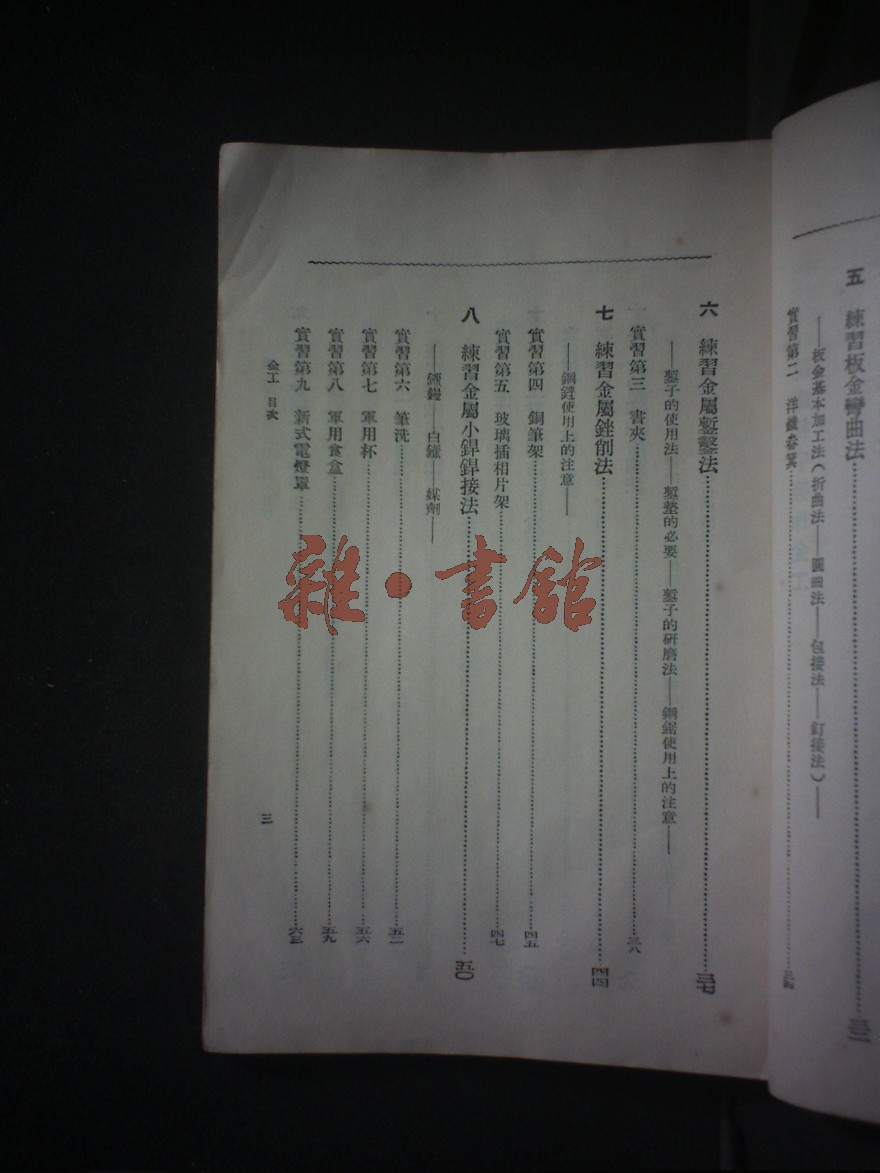 五　練習板金彎曲法……三二
——板金基本加工法（折曲法——圓曲法——包接法——釘接法）——
實習第二　洋鐵畚箕……三四
六　練習金屬鏨鑿法……三七
——鏨子的使用法——鏨墊的必要——鏨子的研磨法——鋼鋸使用上的注意——
實習第三　書夾……三八
七　練習金屬銼削法……四四
——鋼銼使用上的注意——
實習第四　銅筆架……四五
實習第五　玻璃插相片架……四七
八　練習金屬小銲銲接法……五〇
——白鑞——媒劑——
實習第六　筆洗……五二
實習第七　軍用杯……五六
實習第八　軍用食盒……五九
實習第九　新式電燈罩……六三
金工　目次
三
雜·書館